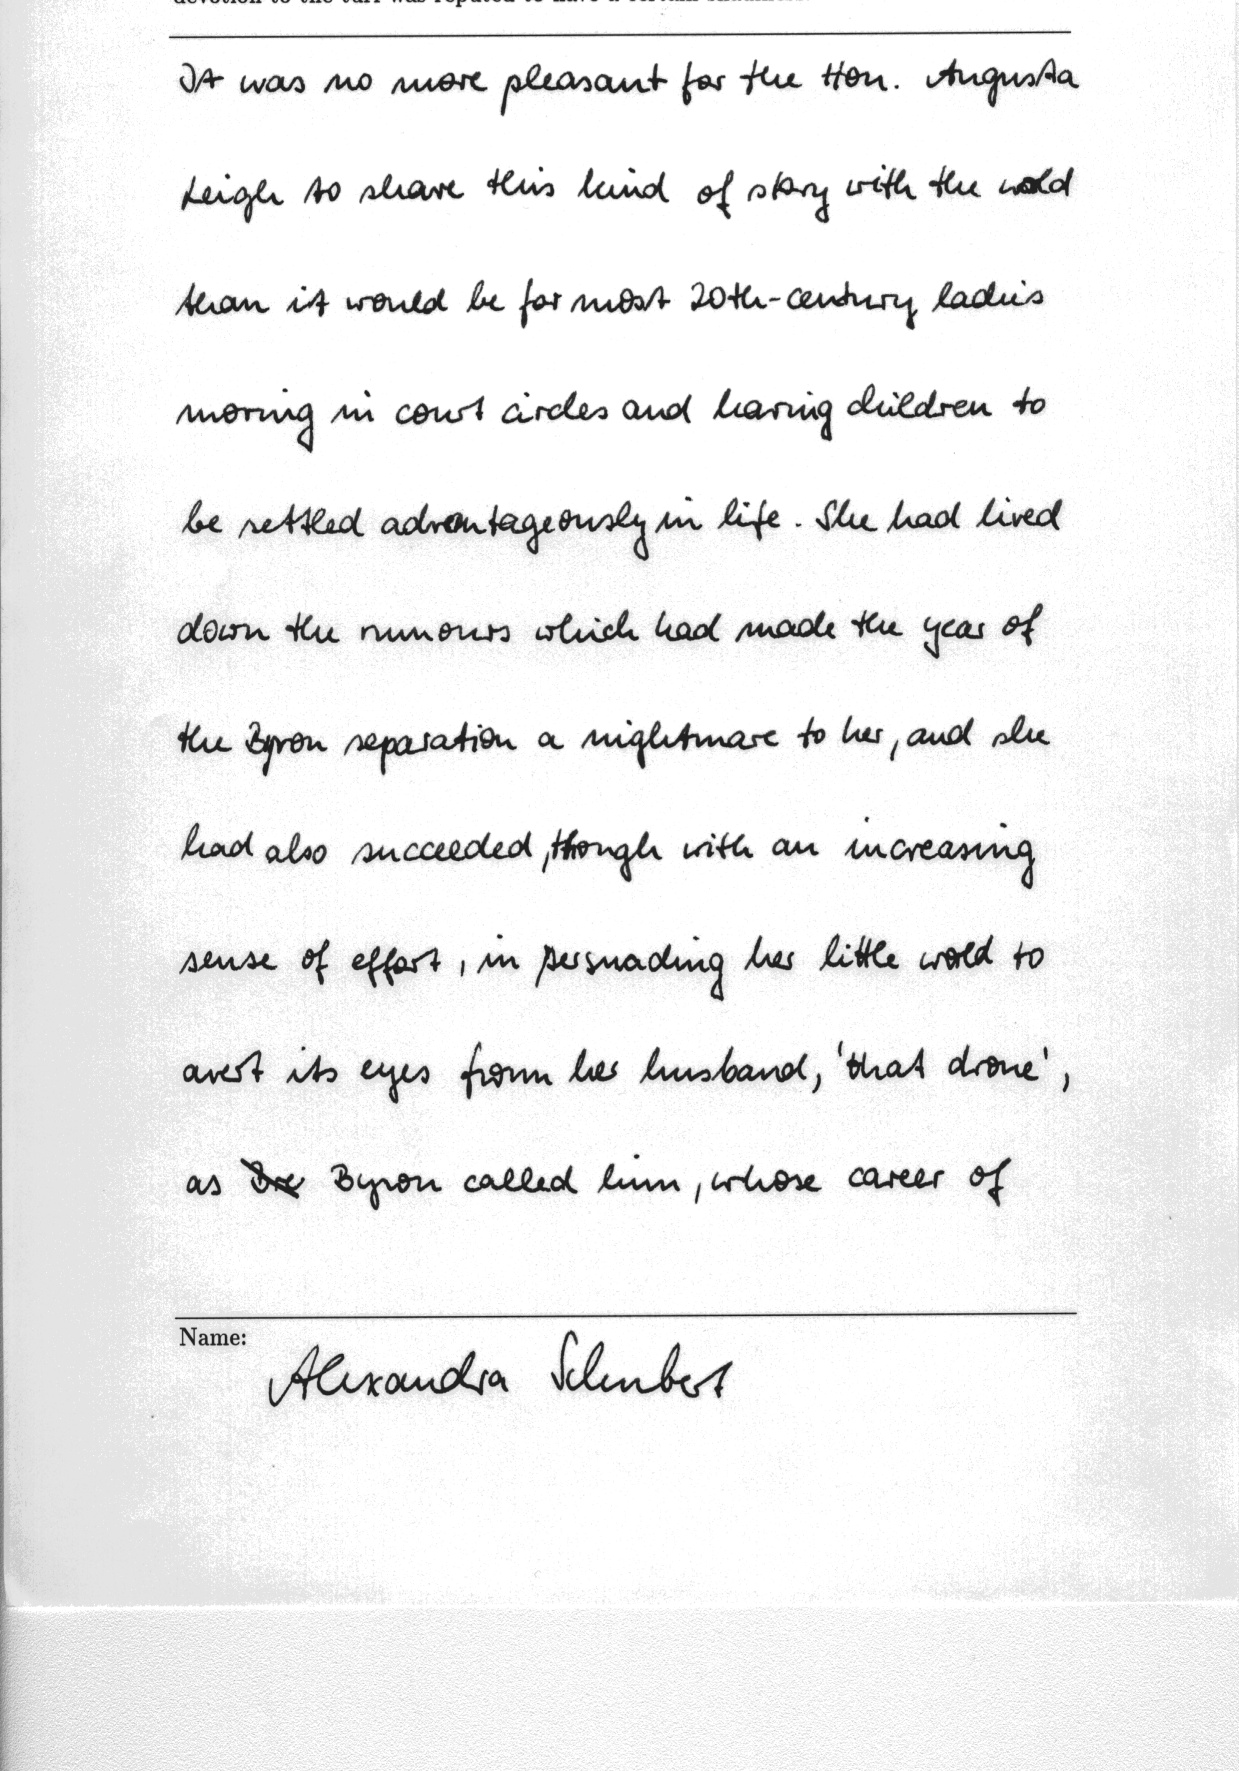 It was no more pleasant for the Hon. Augusta
Leigh to share this kind of story with the world
than it would be for most 20th-century ladies
moving in court circles and having children to
be settled advantageously in life. She had lived
down the rumours which had made the year of
the Byron separation a nightmare to her, and she
had also succeeded, though with an increasing
sense of effort, in persuading her little world to
avert its eyes from her husband, 'that drone',
as Byron called him, whose career of
Name:
Alexandra Schubert